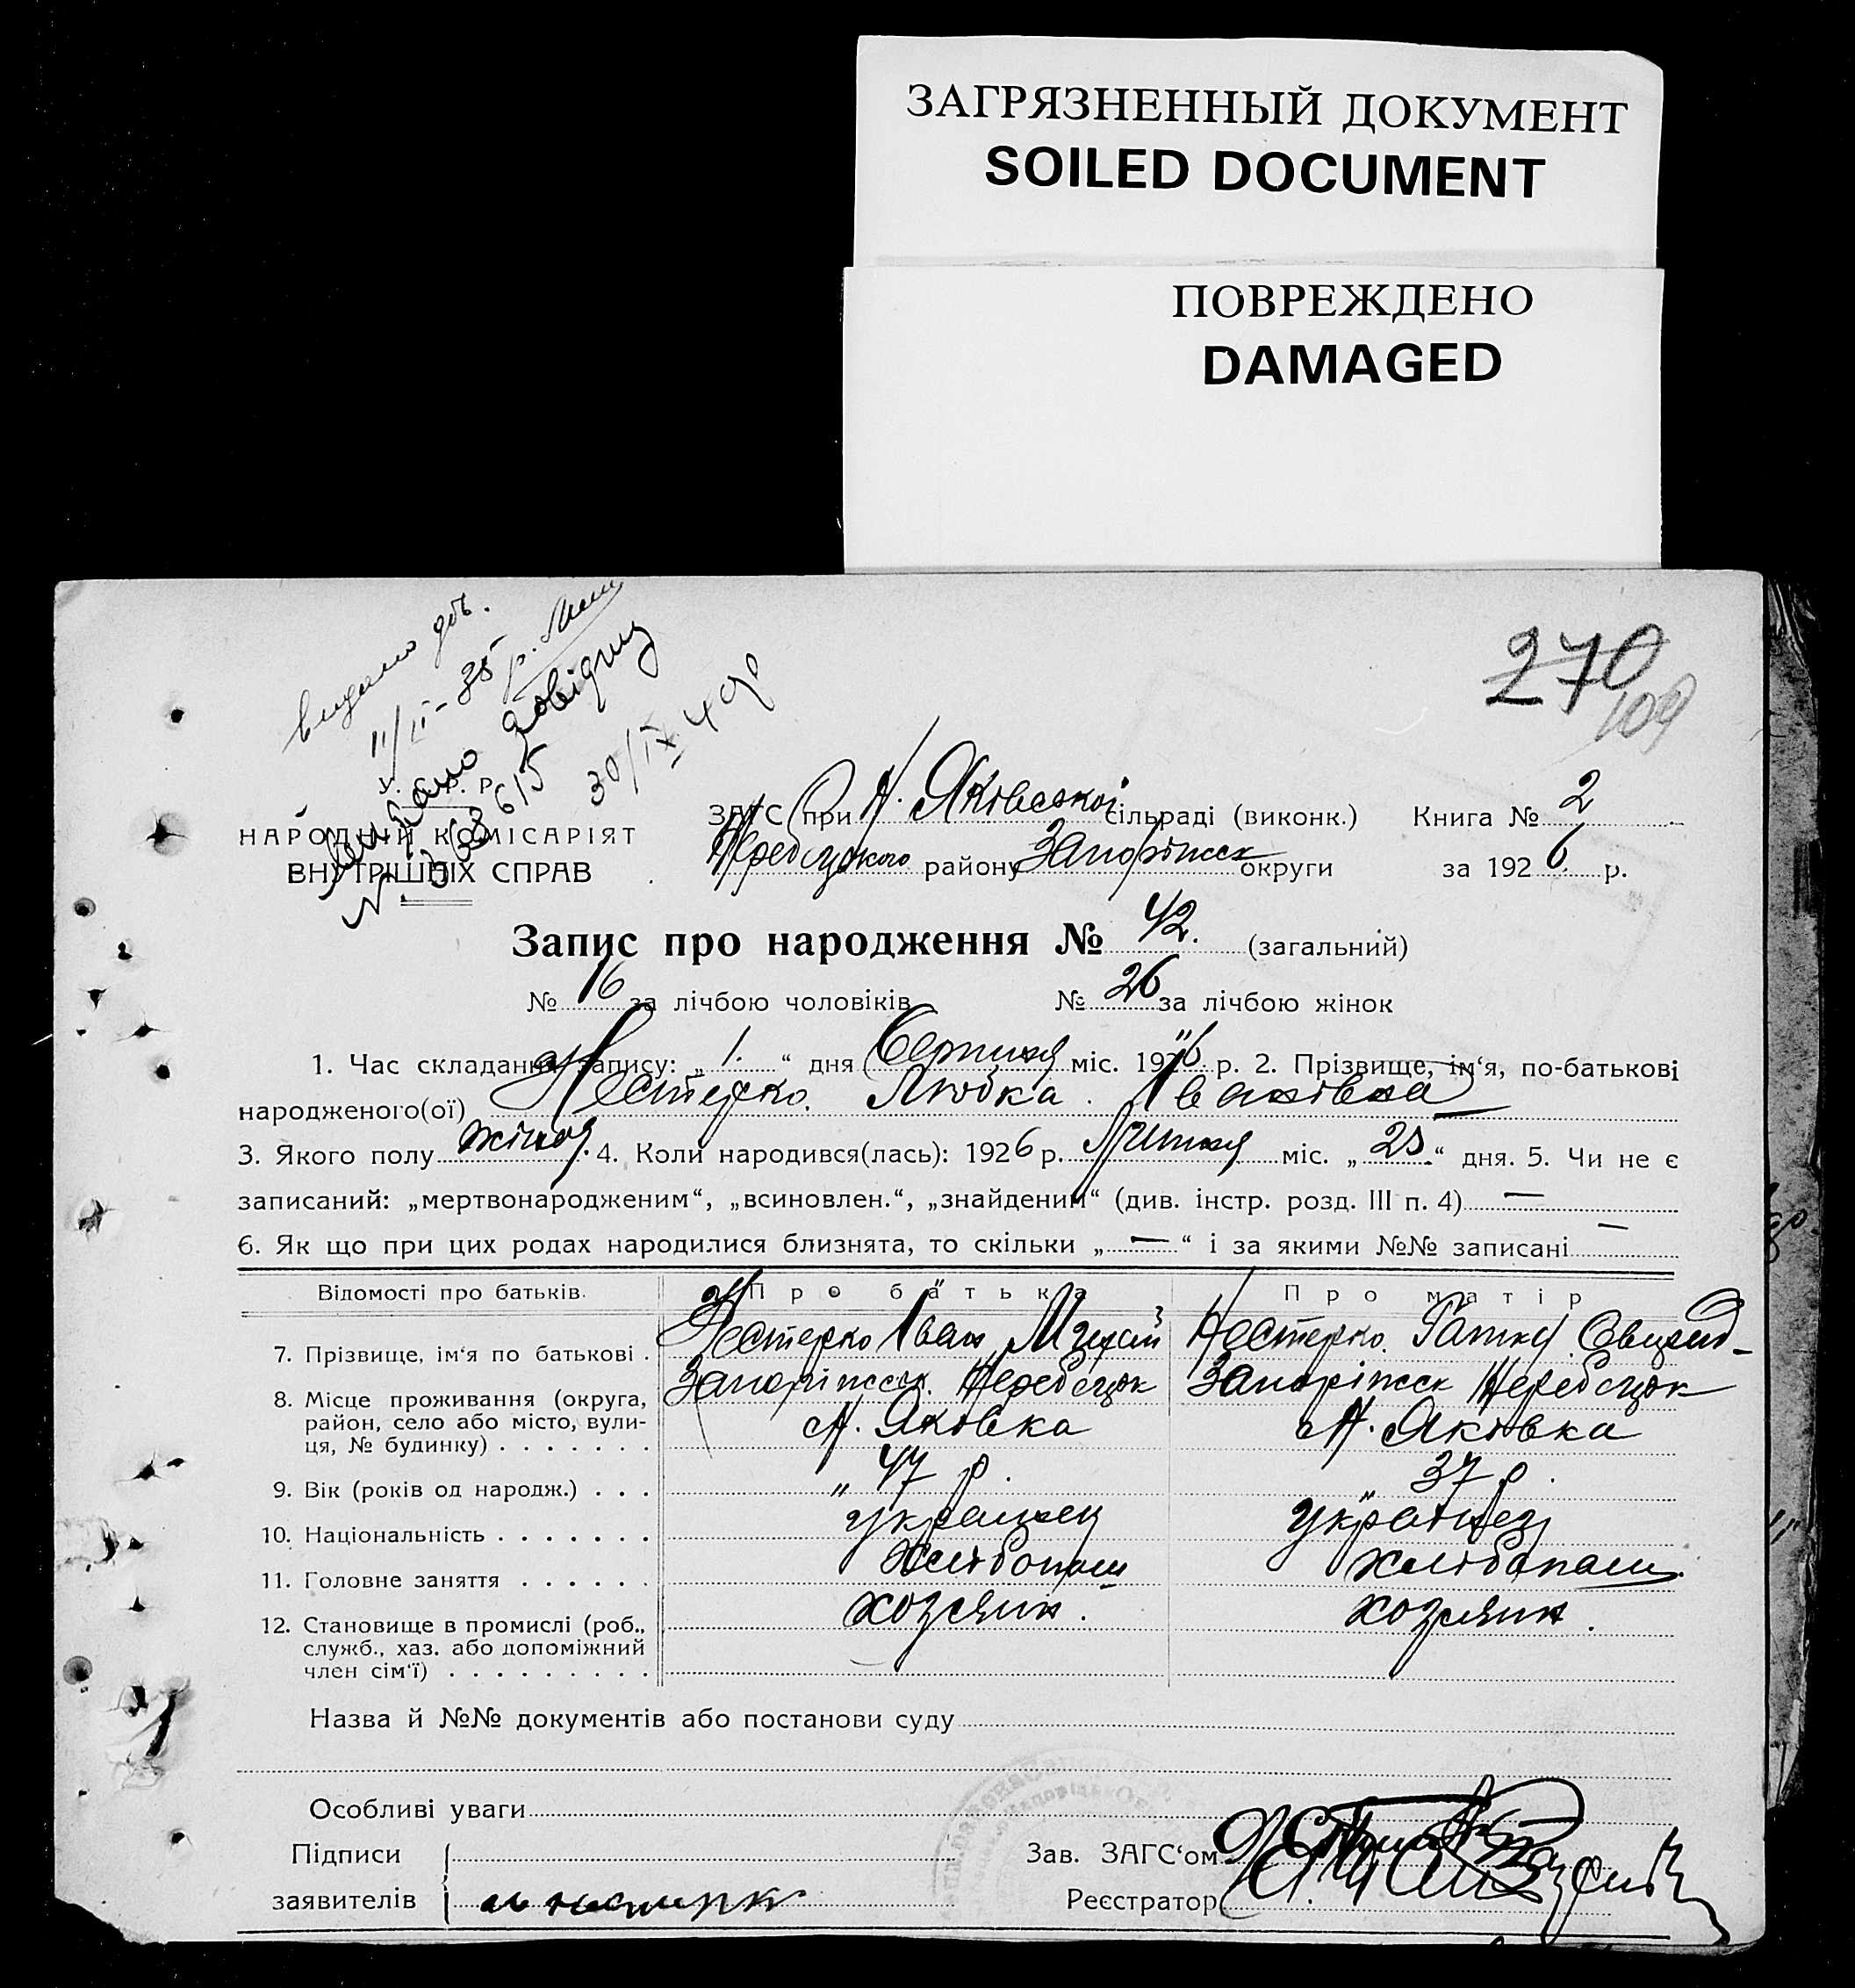 ЗАГРЯЗНЕННЫЙ ДОКУМЕНТ
SOILED DOCUMENT
ПОВРЕЖДЕНО
DAMAGED
видано
11/II-35 р.
270
109
довідку
30/IX 40р
У. С. Р. Р.
НАРОДНІЙ КОМІСАРІЯТ
ВНУТРІШНІХ СПРАВ
ЗАГС при Н. Яківської сільраді (виконк.) Книга № 2
району Запоріжск округи за 1926 р.
Запис про народження № 42. (загальний)
№ 16 за лічбою чоловіків № 26 за лічбою жінок
1. Час складання запису: „ 1. “ дня Серпня міс. 1926 р. 2. Прізвище, ім‘я, по-батькові
народженого(ої) Нестерко. Любка. Іванівна
3. Якого полу жіноч. 4. Коли народився(лась): 1926 р. Липня міс. „ 25 “ дня. 5. Чи не є
записаний: „мертвонародженим“, „всиновлен.“, „знайденим“ (див. інстр. розд. III п. 4) —
6. Як що при цих родах народилися близнята, то скільки „ — “ і за якими №№ записані —
Відомості про батьків. Про батька Про матір
7. Прізвище, ім‘я по батькові . Нестерко Іван Нестерко.
8. Місце проживання (округа, Запоріжськ. Запоріжск
район, село або місто, вули- Н. Яківка Н. Яківка
ця, № будинку) . . . . . . .
9. Вік (років од народж.) . . . „ 47 р. „ 37 р.
10. Національність . . . . . . . українец українец
11. Головне заняття . . . . . . хлібопаш хлібопаш.
12. Становище в промислі (роб., хозяин. хозяин.
служб., хаз. або допоміжний
член сім‘ї) . . . . . . . . .
Назва й №№ документів або постанови суду
Особливі уваги
Підписи Зав. ЗАГС‘ом
заявителів Реєстратор